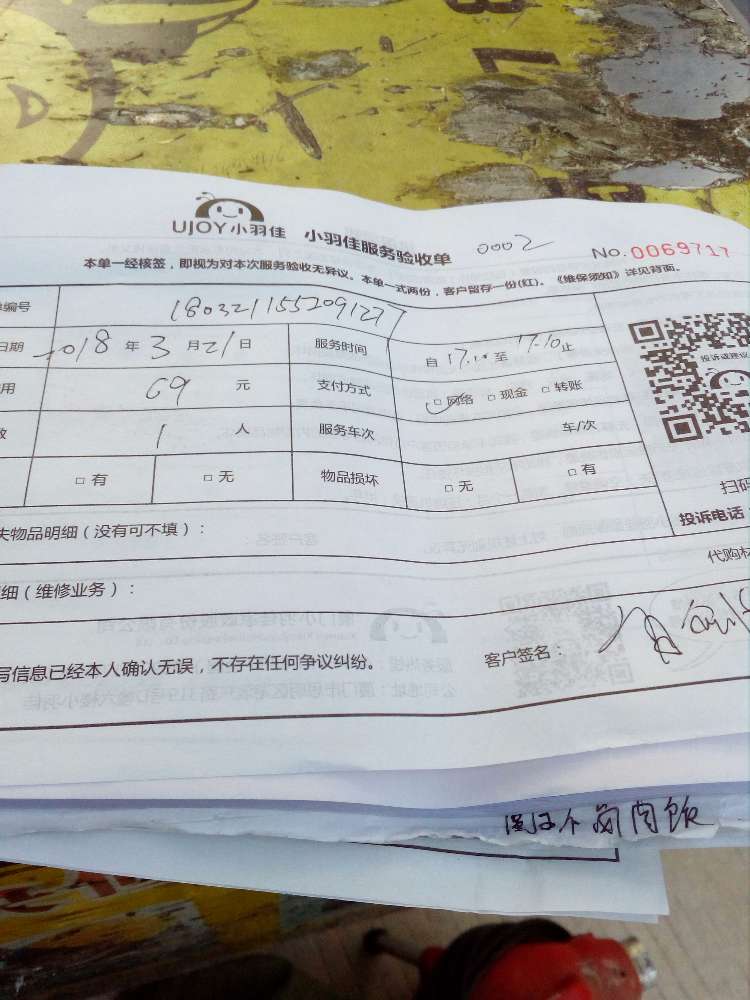 UJOY小羽佳 小羽佳服务验收单 0002 No.0069717
本单一经核签，即视为对本次服务验收无异议。本单一式两份，客户留存一份(红)。《维保须知》详见背面。
编号 180321155209127
日期 2018 年 3 月 21 日 服务时间 自 17.10 至 17.10 止
用 69 元 支付方式 □ 网络 □ 现金 □ 转账
数 1 人 服务车次 车/次
□ 有 □ 无 物品损坏 □ 无 □ 有
投诉或建议
扫码
投诉电话：
失物品明细（没有可不填）：
代购材
细（维修业务）：
写信息已经本人确认无误，不存在任何争议纠纷。 客户签名：
卤肉饭